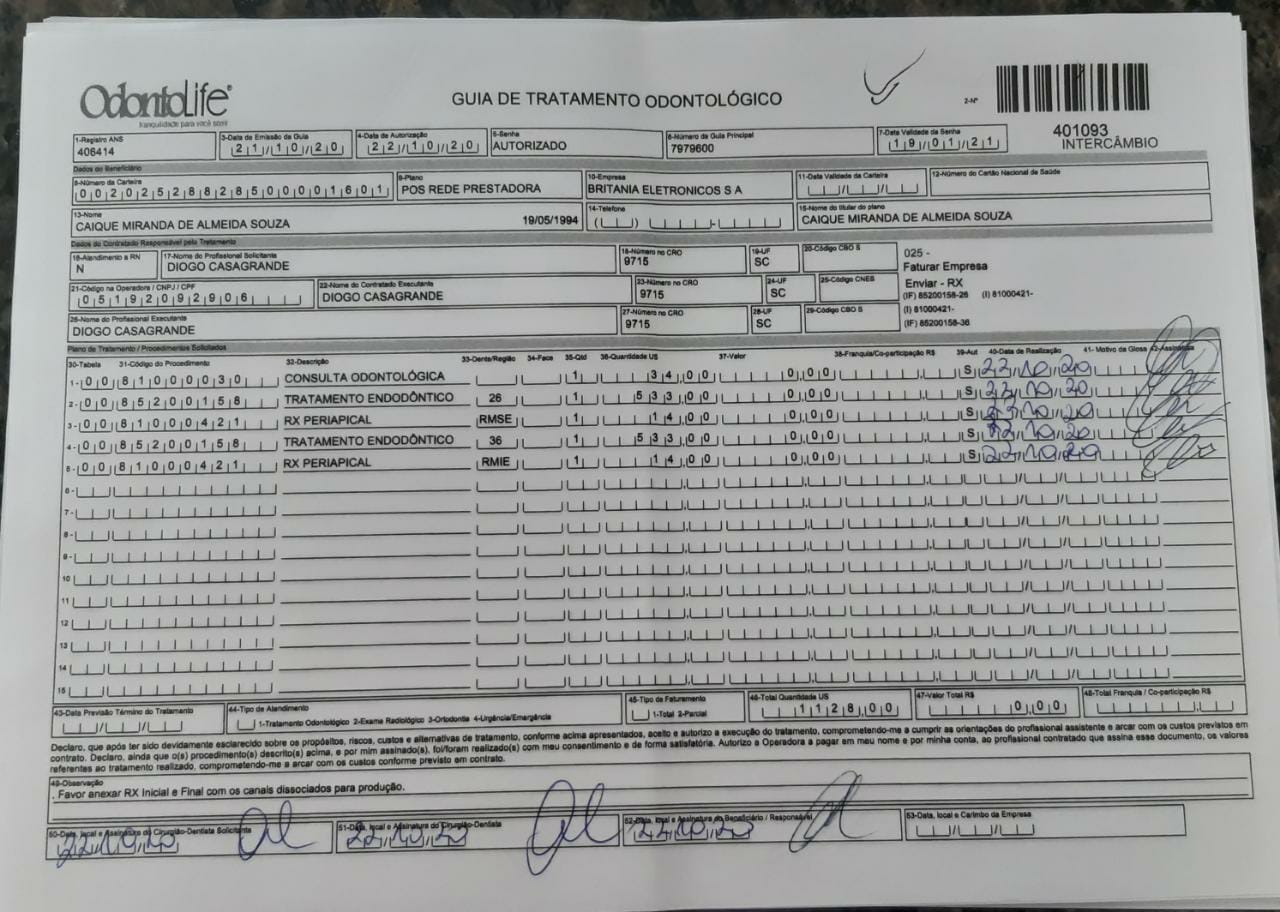 OdontoLife®
tranquilidade para você sorrir
GUIA DE TRATAMENTO ODONTOLÓGICO
2-Nº
401093
INTERCÂMBIO
1-Registro ANS 3-Data de Emissão da Guia 4-Data de Autorização 5-Senha 6-Número da Guia Principal 7-Data Validade da Senha
406414 21/10/20 22/10/20 AUTORIZADO 7979600 19/01/21
Dados do Beneficiário
8-Número da Carteira 9-Plano 10-Empresa 11-Data Validade da Carteira 12-Número do Cartão Nacional de Saúde
00202528828500001601 POS REDE PRESTADORA BRITANIA ELETRONICOS S A
13-Nome 14-Telefone 15-Nome do titular do plano
CAIQUE MIRANDA DE ALMEIDA SOUZA 19/05/1994 CAIQUE MIRANDA DE ALMEIDA SOUZA
Dados do Contratado Responsável pelo Tratamento
16-Atendimento a RN 17-Nome do Profissional Solicitante 18-Número no CRO 19-UF 20-Código CBO S
N DIOGO CASAGRANDE 9715 SC
025 -
Faturar Empresa
Enviar - RX
(IF) 85200158-26 (I) 81000421-
(I) 81000421-
(IF) 85200158-36
21-Código na Operadora / CNPJ / CPF 22-Nome do Contratado Executante 23-Número no CRO 24-UF 25-Código CNES
05192092906 DIOGO CASAGRANDE 9715 SC
26-Nome do Profissional Executante 27-Número no CRO 28-UF 29-Código CBO S
DIOGO CASAGRANDE 9715 SC
Plano de Tratamento / Procedimentos Solicitados
30-Tabela 31-Código do Procedimento 32-Descrição 33-Dente/Região 34-Face 35-Qtd 36-Quantidade US 37-Valor 38-Franquia/Co-participação R$ 39-Aut 40-Data de Realização 41- Motivo da Glosa 42-Assinatura
1- 00 81000030 CONSULTA ODONTOLÓGICA 1 34,00 0,00 S 22/10/20
2- 00 85200158 TRATAMENTO ENDODÔNTICO 26 1 533,00 0,00 S 22/10/20
3- 00 81000421 RX PERIAPICAL RMSE 1 14,00 0,00 S 22/10/20
4- 00 85200158 TRATAMENTO ENDODÔNTICO 36 1 533,00 0,00 S 22/10/20
5- 00 81000421 RX PERIAPICAL RMIE 1 14,00 0,00 S 22/10/20
6-
7-
8-
9-
10
11
12
13
14
15
43-Data Previsão Término do Tratamento 44-Tipo de Atendimento 45-Tipo de Faturamento 46-Total Quantidade US 47-Valor Total R$ 48-Total Franquia / Co-participação R$
1-Tratamento Odontológico 2-Exame Radiológico 3-Ortodontia 4-Urgência/Emergência 1-Total 2-Parcial 1128,00 0,00
Declaro, que após ter sido devidamente esclarecido sobre os propósitos, riscos, custos e alternativas de tratamento, conforme acima apresentados, aceito e autorizo a execução do tratamento, comprometendo-me a cumprir as orientações do profissional assistente e arcar com os custos previstos em
contrato. Declaro, ainda que o(s) procedimento(s) descrito(s) acima, e por mim assinado(s), foi/foram realizado(s) com meu consentimento e de forma satisfatória. Autorizo a Operadora a pagar em meu nome e por minha conta, ao profissional contratado que assina esse documento, os valores
referentes ao tratamento realizado, comprometendo-me a arcar com os custos conforme previsto em contrato.
49-Observação
. Favor anexar RX Inicial e Final com os canais dissociados para produção.
50-Data, local e Assinatura do Cirurgião-Dentista Solicitante 51-Data, local e Assinatura do Cirurgião-Dentista 52-Data, local e Assinatura do Beneficiário / Responsável 53-Data, local e Carimbo da Empresa
22/10/20 22/10/20 22/10/20